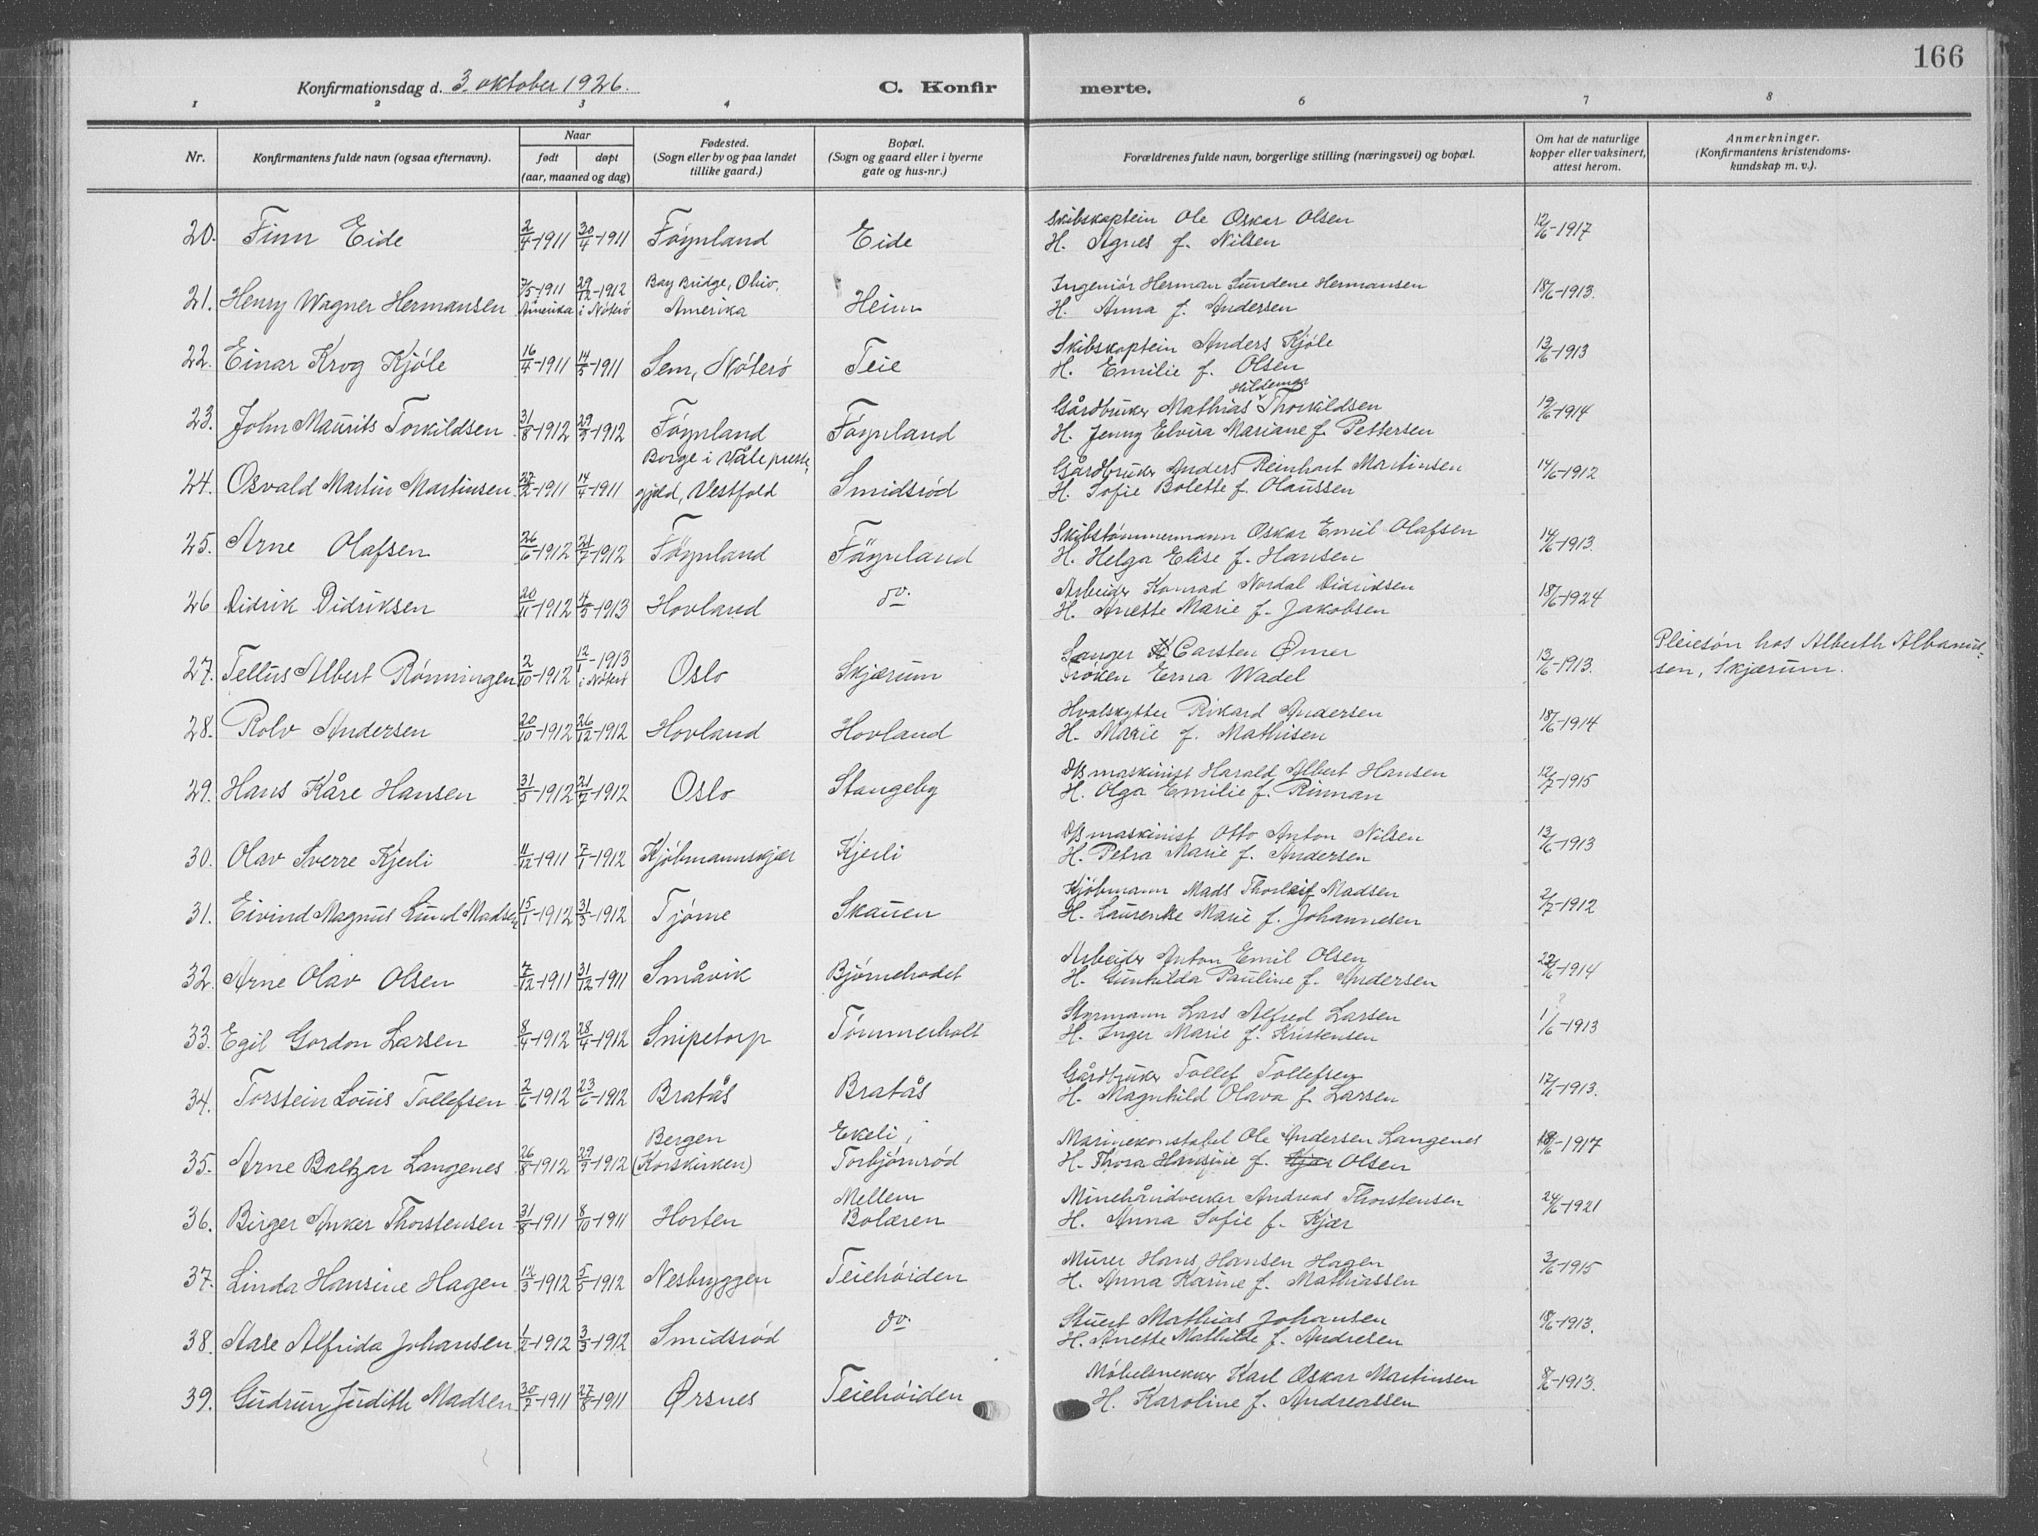 166
Konfirmationsdag d. 3. oktober 1926.
C. Konfirmerte.
1 2 3 4 5 6 7 8
Nr. | Konfirmantens fulde navn (ogsaa efternavn). | Naar født døpt (aar, maaned og dag) | Fødested. (Sogn eller by og paa landet tillike gaard.) | Bopæl. (Sogn og gaard eller i byerne gate og hus-nr.) | Forældrenes fulde navn, borgerlige stilling (næringsvei) og bopæl. | Om hat de naturlige kopper eller vaksinert, attest herom. | Anmerkninger. (Konfirmantens kristendomskundskap m. v.).
20. Finn Eide 2/4-1911 30/4-1911 Føynland Eide Skibskaptein Ole Oskar Olsen 12/6-1917
H. Agnes f. Nilsen
21. Henry Wagner Hermansen 7/5-1911 Amerika 29/12-1912 i Nøterø Bay Bridge, Ohio, Amerika Heim Ingeniør Herman Sundene Hermansen 18/6-1913.
H. Anna f. Andersen
22. Einar Krog Kjøle 16/4-1911 14/5-1911 Sem, Nøterø Teie Skibskaptein Anders Kjøle 13/6-1913
H. Emilie f. Olsen
23. John Maurits Torkildsen 31/8-1912 29/9-1912 Føynland Føynland Gårdbruker Mathias Hildemar Thorkildsen 19/6-1914
H. Jenny Elvira Mariane f. Pettersen
24. Osvald Martin Martinsen 27/2-1911 14/4-1911 Borge i Våle prestegjeld, Vestfold Smidsrød Gårdbruker Anders Reinhart Martinsen 14/6-1912
H. Sofie Bolette f. Olaussen
25. Arne Olafsen 26/6-1912 21/7-1912 Føynland Føynland Skibstømmermann Oskar Emil Olafsen 14/6-1913.
H. Helga Elise f. Hansen
26 Didrik Didriksen 20/11-1912 4/5-1913 Hovland do. Arbeider Konrad Nordal Didriksen 18/6-1924
H. Anette Marie f. Jakobsen
27. Tellus Albert Rønningen 2/10-1912 12/1-1913 i Nøterø Oslo Skjærum Sanger Carsten Ømer 13/6-1913. Pleiesøn hos Alberth Albanussen, Skjærum.
Frøken Erna Wadel
28. Rolv Andersen 20/10-1912 26/12-1912 Hovland Hovland Hvalskytter Rikard Andersen 18/6-1914
H. Marie f. Mathisen
29. Hans Kåre Hansen 31/5-1912 21/7-1912 Oslo Stangeby D/S maskinist Harald Albert Hansen 12/7-1915
H. Olga Emilie f. Rinman
30. Olav Sverre Kjerli 11/12-1911 7/1-1912 Kjøbmannskjær Kjerli D/S maskinist Otto Anton Nilsen 13/6-1913
H. Petra Marie f. Andersen
31. Eivind Magnus Lund Madsen 15/1-1912 31/3-1912 Tjøme Skauen Kjøbmann Mads Thorleif Madsen 2/7-1912
H. Laurenke Marie f. Johannesen
32. Arne Olav Olsen 7/12-1911 31/12-1911 Småvik Bjørnehodet Arbeider Anton Emil Olsen 22/6-1914
H. Gunhilda Pauline f. Andersen
33. Egil Gordon Larsen 8/4-1912 28/4-1912 Snipetorp Tømmerholt Styrmann Lars Alfred Larsen 1/6-1913
H. Inger Marie f. Kristensen
34. Torstein Louis Tollefsen 2/6-1912 23/6-1912 Bratås Bratås Gårdbruker Tollef Tollefsen 17/6-1913.
H. Magnhild Olava f. Larsen
35. Arne Baltzar Langenes 26/8-1912 29/9-1912 Bergen (Korskirken) Ekeli, Torbjørnrød Marinekonstabel Ole Andersen Langenes 18/6-1917
H. Thora Hansine f. Kjær Olsen
36. Birger Anker Thorstensen 31/8-1911 8/10-1911 Horten Mellem Bolæren Minehåndverker Andreas Thorstensen 24/6-1921
H. Anna Sofie f. Kjær
37. Linda Hansine Hagen 12/3-1912 5/5-1912 Nesbryggen Teiehøiden Murer Hans Hansen Hagen 3/6-1915
H. Anna Karine f. Mathiassen
38. Aase Alfrida Johansen 1/2-1912 3/3-1912 Smidsrød do. Stuert Mathias Johansen 18/6-1913.
H. Anette Mathilde f. Andresen
39. Gudrun Judith Madsen 30/7-1911 27/8-1911 Ørsnes Teiehøiden Møbelsnekker Karl Oskar Martinsen 8/6-1913.
H. Karoline f. Andreassen